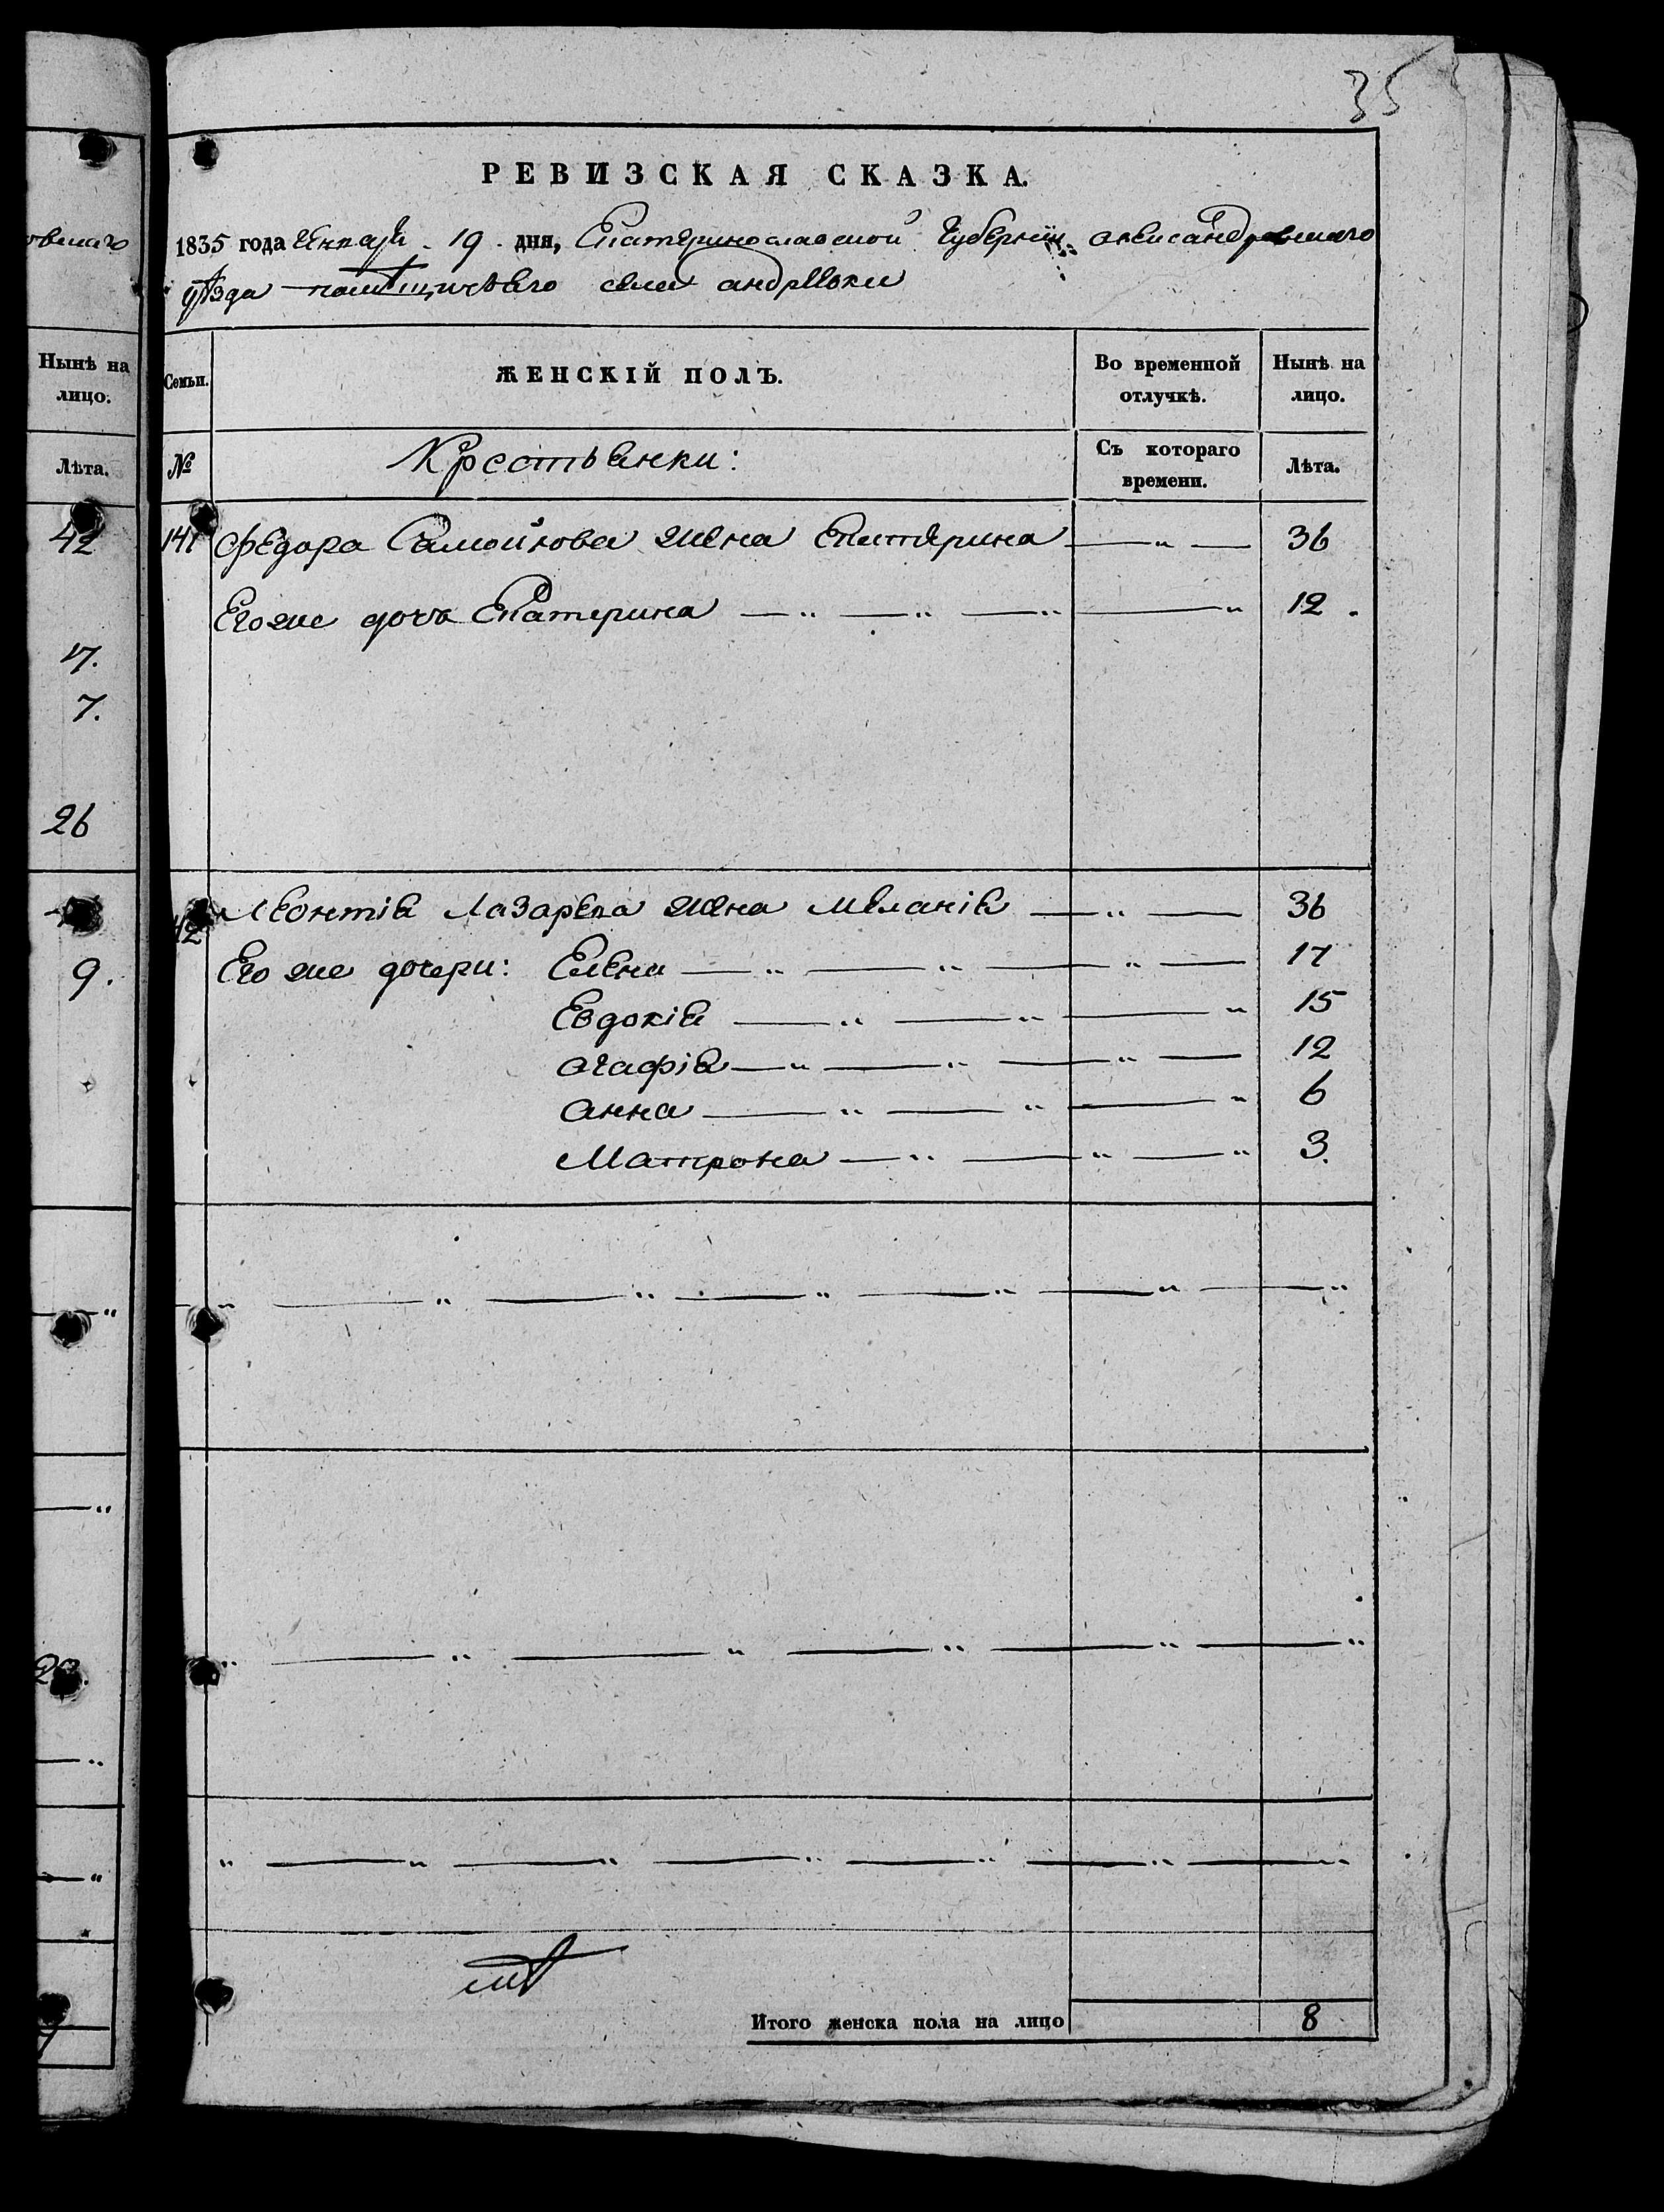 овскаго
Нынѣ на
лицо.
Лѣта.
42
17.
7.
26
9.
35
РЕВИЗСКАЯ СКАЗКА.
1835 года Января 19. дня, Екатеринославской Губерніи Александровскаго
уѣзда помѣщичьяго села Андреевки
Семьи. ЖЕНСКІЙ ПОЛЪ. Во временной отлучкѣ. Нынѣ на лицо.
№ Крестьянки: Съ котораго времени. Лѣта.
141 Федора Самойлова жена Екатерина — „ — 36
Его же дочь Екатерина — „ — „ — „ — „ 12.
142 Леонтія Лазарева жена Меланія — „ — 36
Его же дочери: Елена — „ — „ — „ — 17
Евдокія — „ — „ — „ 15
Агафія — „ — „ — „ — 12
Анна — „ — „ — „ 6
Матрона — „ — „ — „ 3.
Итого женска пола на лицо 8